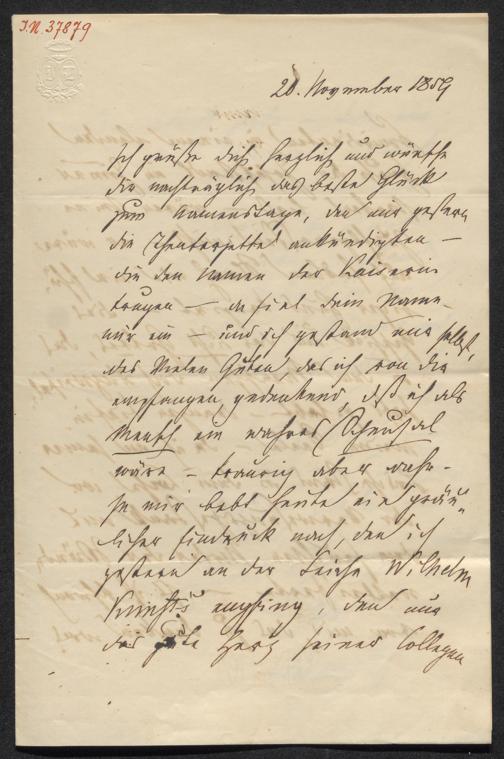 I.N. 37879
20. November 1859
Ich grüße dich herzlich und wünsche
dir nachträglich das beste Glück
zum Namenstage, den mir gestern
die Theaterzettel ankündigten —
die den Namen der Kaiserin
tragen — da fiel dein Name
mir ein — und ich gestand mir selbst,
des Vielen Guten, das ich von dir
empfangen gedenkend, daß ich als
Mensch ein wahres Scheusal
wäre — traurig aber wahr —
In mir bebt heute ein gräu-
licher Eindruck nach, den ich
gestern an der Leiche Wilhelm
empfing, den nur
das gute Herz seines Collegen